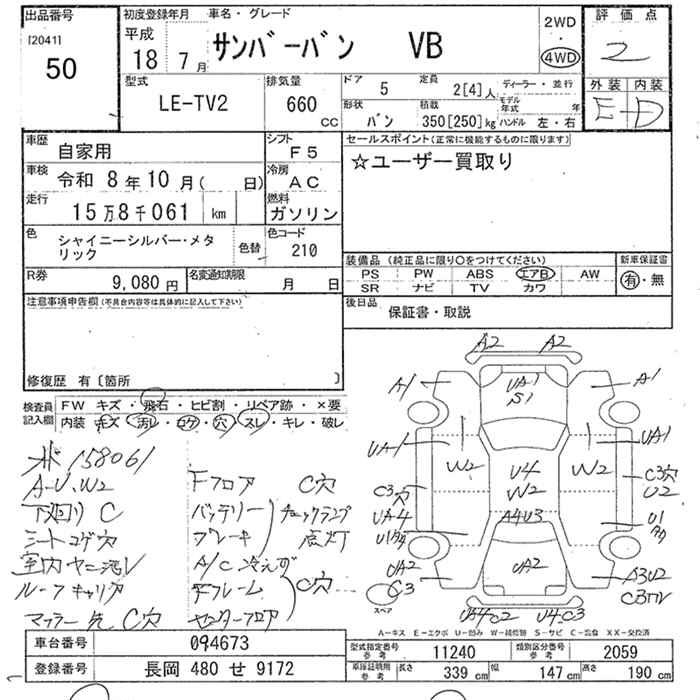 出品番号
[2041]
50
初度登録年月
平成
18 7月
車名・グレード
サンバーバン VB
2WD
・
4WD
評価点
2
外装 内装
E D
型式
LE-TV2
排気量
660
CC
ドア 5
定員 2[4]人
ディーラー・並行
形状 バン
積載 350[250]kg
モデル年式 年
ハンドル 左・右
車歴
自家用
シフト
F5
車検
令和 8年10月( 日)
冷房
AC
走行
15万8千061 km
燃料
ガソリン
色
シャイニーシルバー・メタリック
色替
色コード
210
R券
9,080円
名変通知期限
月 日
セールスポイント(正常に機能するものに限ります)
☆ユーザー買取り
装備品 (純正品に限り○をつけてください)
PS PW ABS エアB AW
SR ナビ TV カワ
新車保証書
有・無
後日品
保証書・取説
注意事項申告欄(不具合内容等は具体的に記入して下さい)
修復歴 有〔箇所 〕
検査員記入欄
FW キズ・飛石・ヒビ割・リペア跡・×要
内装 キズ・汚れ・コゲ・穴・スレ・キレ・破レ
158061
A・U、W2
下廻り C
シートコゲ穴
室内ヤニ汚レ
ルーフキャリア
マフラー先 C穴
Fフロア C穴
バッテリー
ブレーキ
チェックランプ点灯
A/C 冷えず
Fフレーム
センターフロア
C穴
A2 A2
A1 A1
UA1
S1
UA1 UA1
W2 W2
U4
W2
C3穴 C3穴
U2
UA4 U1
A4U3
UA2 UA2
C3
A3U2
UA4C2 U4C3
スペア
A-キズ E-エクボ U-凹み W-補修跡 S-サビ C-腐食 XX-交換済
車台番号 094673
登録番号 長岡 480 せ 9172
型式指定番号 参考 11240
類別区分番号 参考 2059
車庫証明用 参考 長さ 339 cm 幅 147 cm 高さ 190 cm